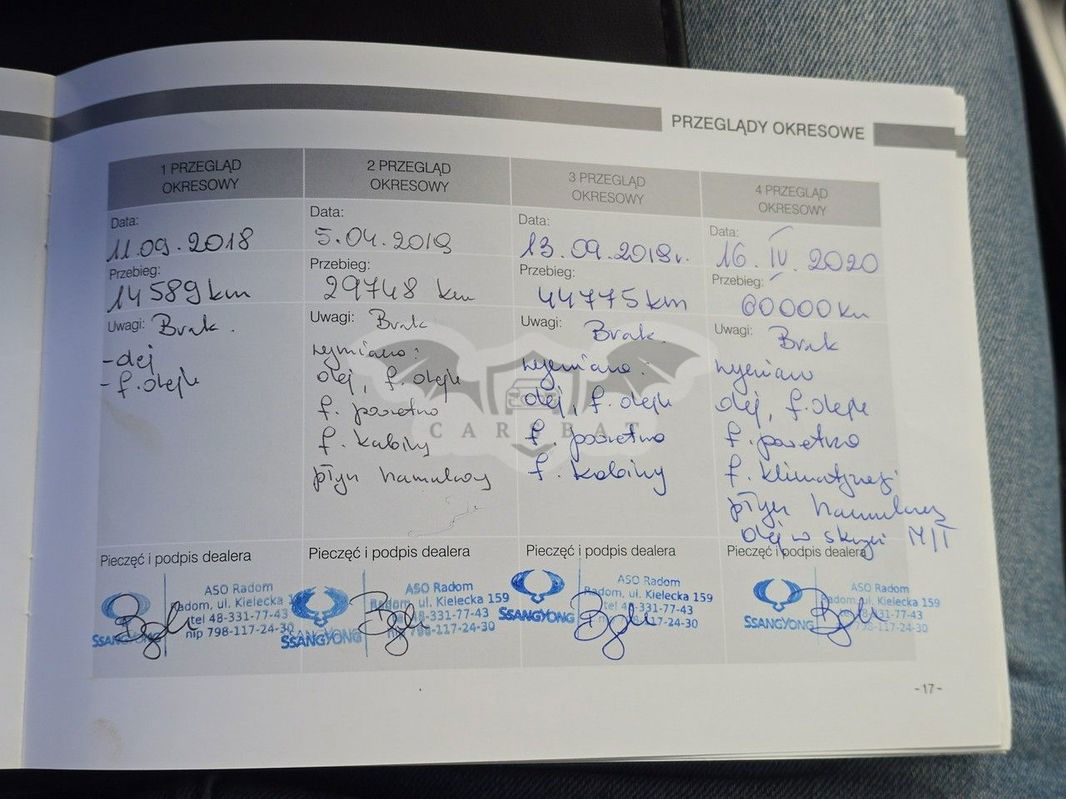 PRZEGLĄDY OKRESOWE
1 PRZEGLĄD
OKRESOWY
Data:
11.09.2018
Przebieg:
14589 km
Uwagi: Brak.
- olej
- f. oleju
Pieczęć i podpis dealera
SSANGYONG
ASO Radom
Radom, ul. Kielecka 159
tel 48-331-77-43
nip 798-117-24-30
2 PRZEGLĄD
OKRESOWY
Data:
5.04.2019
Przebieg:
29748 km
Uwagi: Brak
wymiana:
olej, f. oleju
f. powietrza
f. kabiny
płyn hamulcowy
Pieczęć i podpis dealera
SSANGYONG
ASO Radom
Radom, ul. Kielecka 159
tel 48-331-77-43
nip 798-117-24-30
3 PRZEGLĄD
OKRESOWY
Data:
13.09.2019r.
Przebieg:
44775 km
Uwagi: Brak.
wymiana:
olej, f. oleju
f. powietrza
f. kabiny
Pieczęć i podpis dealera
SSANGYONG
ASO Radom
Radom, ul. Kielecka 159
tel 48-331-77-43
nip 798-117-24-30
4 PRZEGLĄD
OKRESOWY
Data:
16. IV. 2020
Przebieg:
60000 km
Uwagi: Brak
wymiana
olej, f. oleju
f. powietrza
f. klimatyzacji
płyn hamulcowy
olej w skrzyni M/T
Pieczęć i podpis dealera
SSANGYONG
ASO Radom
Radom, ul. Kielecka 159
tel 48-331-77-43
nip 798-117-24-30
CARSBAT
-17-